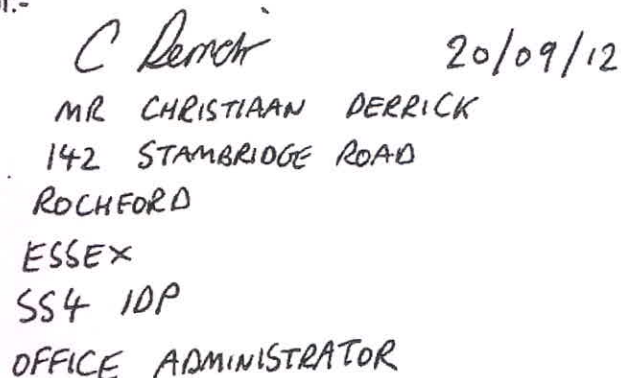 C Derrick 20/09/12
MR CHRISTIAAN DERRICK
142 STAMBRIDGE ROAD
ROCHFORD
ESSEX
SS4 1DP
OFFICE ADMINISTRATOR